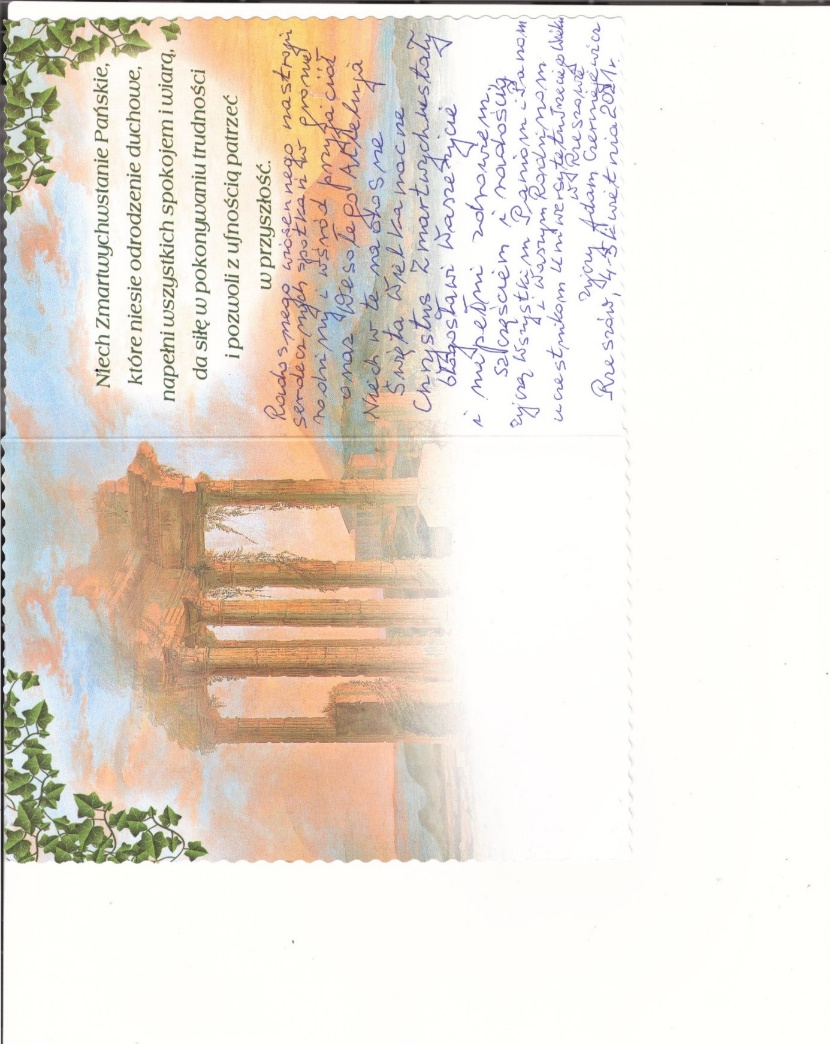 Niech Zmartwychwstanie Pańskie,
które niesie odrodzenie duchowe,
napełni wszystkich spokojem i wiarą,
da siłę w pokonywaniu trudności
i pozwoli z ufnością patrzeć
w przyszłość.
Radosnego wiosennego nastroju
serdecznych spotkań w gronie
rodziny i wśród przyjaciół
oraz Wesołego Alleluja
Niech w te radosne
Święta Wielkanocne
Chrystus Zmartwychwstały
błogosławi Wasze życie
i napełni zdrowiem,
szczęściem i radością
życzą Wszystkim Paniom i Panom
i Waszym Rodzinom
uczestnikom Uniwersytetu Trzeciego Wieku
w Rzeszowie
życzy Adam
Rzeszów, kwietnia 2021 r.